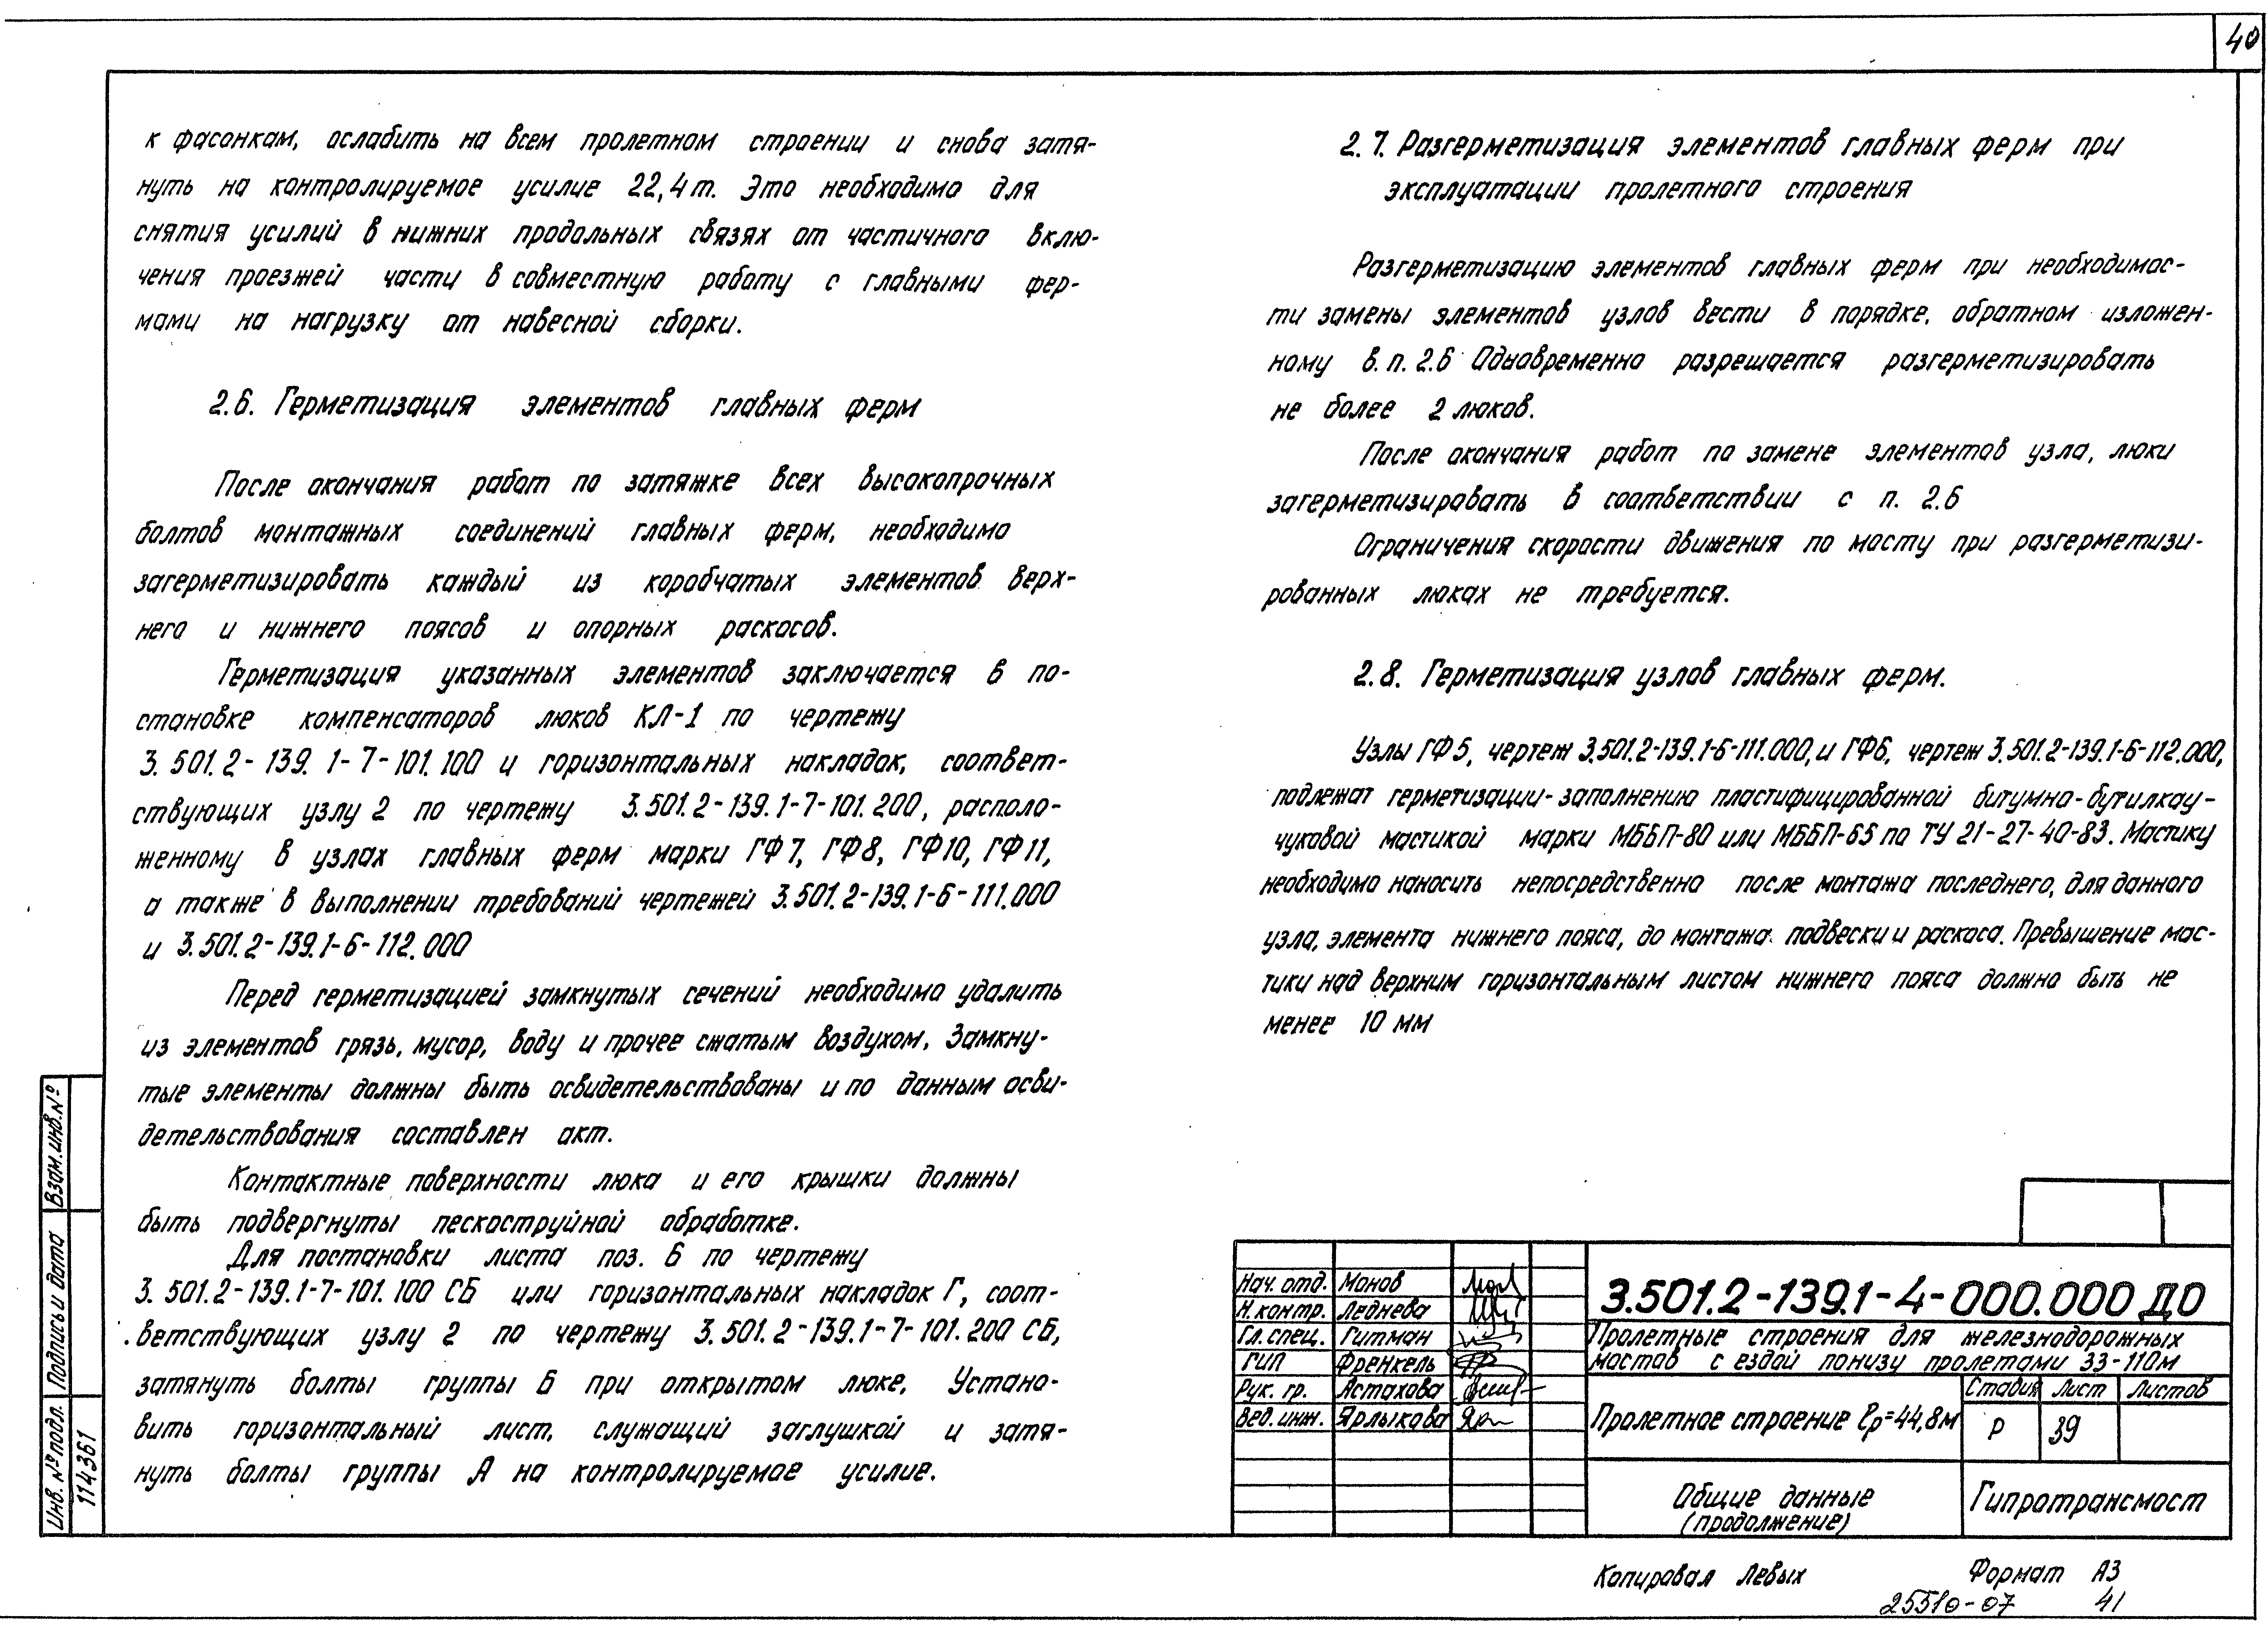 40
к фасонкам, ослабить на всем пролетном строении и снова затя-
нуть на контролируемое усилие 22,4т. Это необходимо для
снятия усилий в нижних продольных связях от частичного вклю-
чения проезжей части в совместную работу с главными фер-
мами на нагрузку от навесной сборки.
2.6. Герметизация элементов главных ферм
После окончания работ по затяжке всех высокопрочных
болтов монтажных соединений главных ферм, необходимо
загерметизировать каждый из коробчатых элементов верх-
него и нижнего поясов и опорных раскосов.
Герметизация указанных элементов заключается в по-
становке компенсаторов люков КЛ-1 по чертежу
3.501.2-139.1-7-101.100 и горизонтальных накладок, соответ-
ствующих узлу 2 по чертежу 3.501.2-139.1-7-101.200, располо-
женному в узлах главных ферм марки ГФ7, ГФ8, ГФ10, ГФ11,
а также в выполнении требований чертежей 3.501.2-139.1-6-111.000
и 3.501.2-139.1-6-112.000
Перед герметизацией замкнутых сечений необходимо удалить
из элементов грязь, мусор, воду и прочее сжатым воздухом. Замкну-
тые элементы должны быть освидетельствованы и по данным осви-
детельствования составлен акт.
Контактные поверхности люка и его крышки должны
быть подвергнуты пескоструйной обработке.
Для постановки листа поз. 6 по чертежу
3.501.2-139.1-7-101.100 СБ или горизонтальных накладок Г, соот-
ветствующих узлу 2 по чертежу 3.501.2-139.1-7-101.200 СБ,
затянуть болты группы Б при открытом люке. Устано-
вить горизонтальный лист, служащий заглушкой и затя-
нуть болты группы А на контролируемое усилие.
2.7. Разгерметизация элементов главных ферм при
эксплуатации пролетного строения
Разгерметизацию элементов главных ферм при необходимос-
ти замены элементов узлов вести в порядке, обратном изложен-
ному в п. 2.6 Одновременно разрешается разгерметизировать
не более 2 люков.
После окончания работ по замене элементов узла, люки
загерметизировать в соответствии с п. 2.6
Ограничения скорости движения по мосту при разгерметизи-
рованных люках не требуется.
2.8. Герметизация узлов главных ферм.
Узлы ГФ5, чертеж 3.501.2-139.1-6-111.000, и ГФ6, чертеж 3.501.2-139.1-6-112.000,
подлежат герметизации-заполнению пластифицированной битумно-бутилкау-
чуковой мастикой марки МББП-80 или МББП-65 по ТУ 21-27-40-83. Мастику
необходимо наносить непосредственно после монтажа последнего, для данного
узла, элемента нижнего пояса, до монтажа подвески и раскоса. Превышение мас-
тики над верхним горизонтальным листом нижнего пояса должно быть не
менее 10 мм
Взам. инв. №
Подпись и дата
Инв. № подл.
114361
Нач. отд. Монов
Н.контр. Леднева
Гл. спец. Гитман
ГИП Френкель
Рук. гр. Астахова
Вед. инж. Ярлыкова
3.501.2-139.1-4-000.000 ДО
Пролетные строения для железнодорожных
мостов с ездой понизу пролетами 33-110м
Пролетное строение ℓр=44,8м
Стадия Лист Листов
Р 39
Общие данные
(продолжение)
Гипротрансмост
Копировал Левых Формат А3
25510-07 41